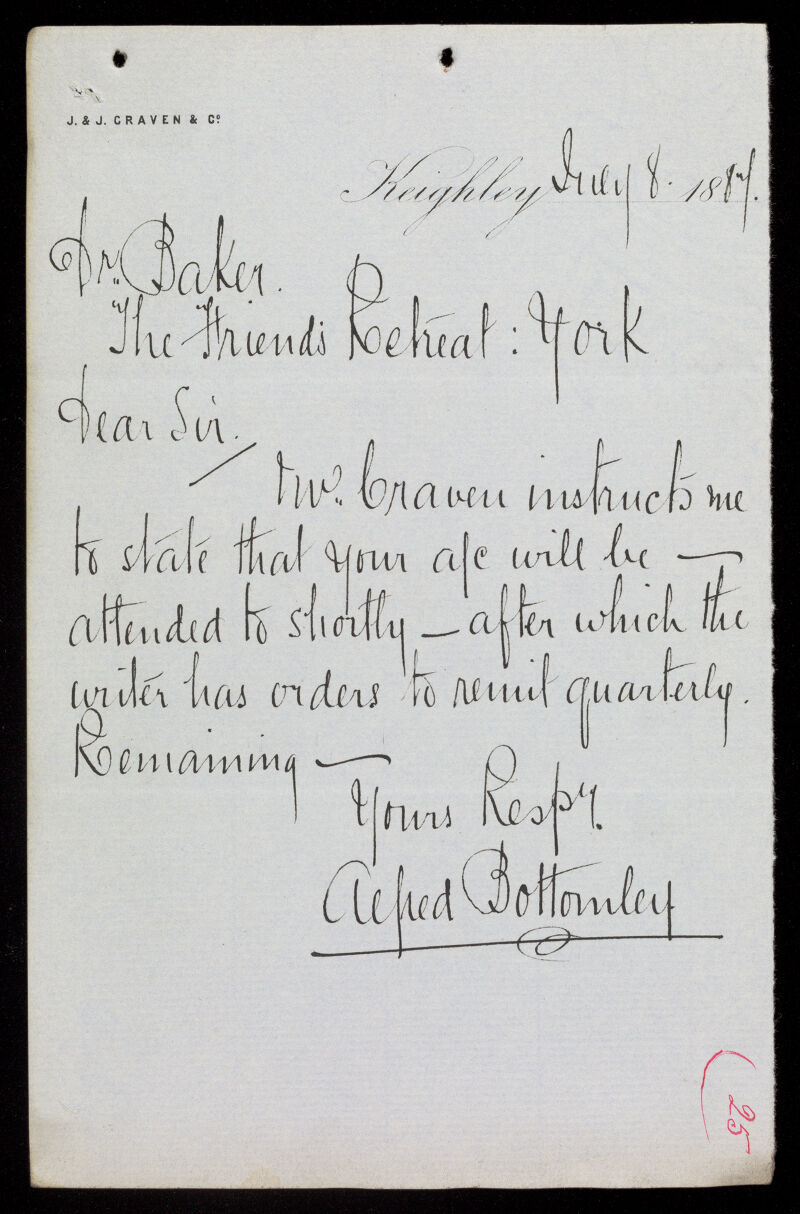 J. & J. CRAVEN & Co.
Keighley July 8. 1887.
Dr. Baker.
The Friends Retreat: York
Dear Sir.
Mr. Craven instructs me
to state that your a/c will be —
attended to shortly — after which the
writer has orders to remit quarterly.
Remaining —
Yours Respy.
Alfred Bottomley
25